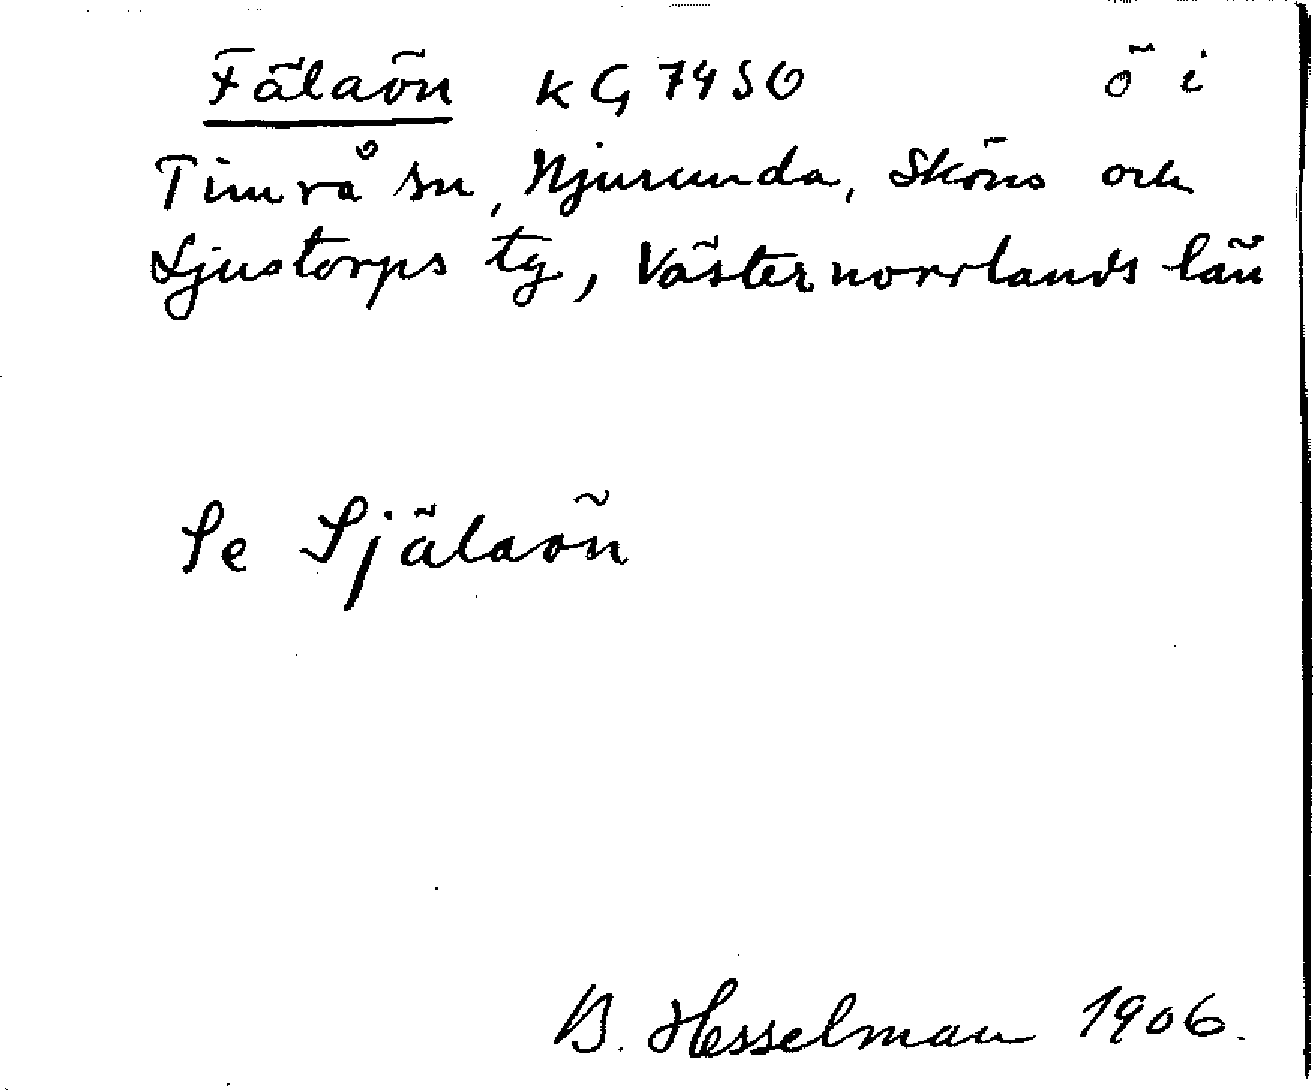 Fälaön KG 7450 ö i
Timrå sn, Njurunda, Sköns och
Ljustorps tg, Västernorrlands län
Se Själaön
B. Hesselman 1906.